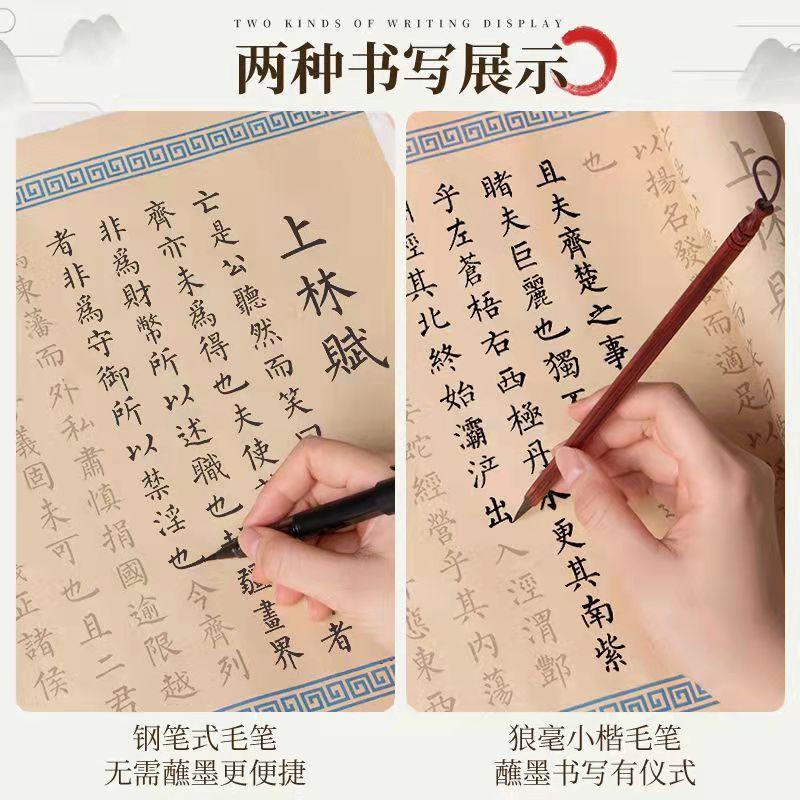 TWO KINDS OF WRITING DISPLAY
两种书写展示
上林賦
亡是公聽然而笑
齊亦未為得也夫使者
非為財幣所以述職也疆畫界
者非為守御所以禁淫也今齊列
東藩而外私肅慎捐國逾限越
義固未可也且二君
正諸侯
上林
以揚名發而適足以
也
且夫齊楚之事
睹夫巨麗也獨
乎左蒼梧右西極丹水更其南紫
其北終始灞浐出入涇渭酆
蛇經營乎其內蕩
態東西
钢笔式毛笔
无需蘸墨更便捷
狼毫小楷毛笔
蘸墨书写有仪式